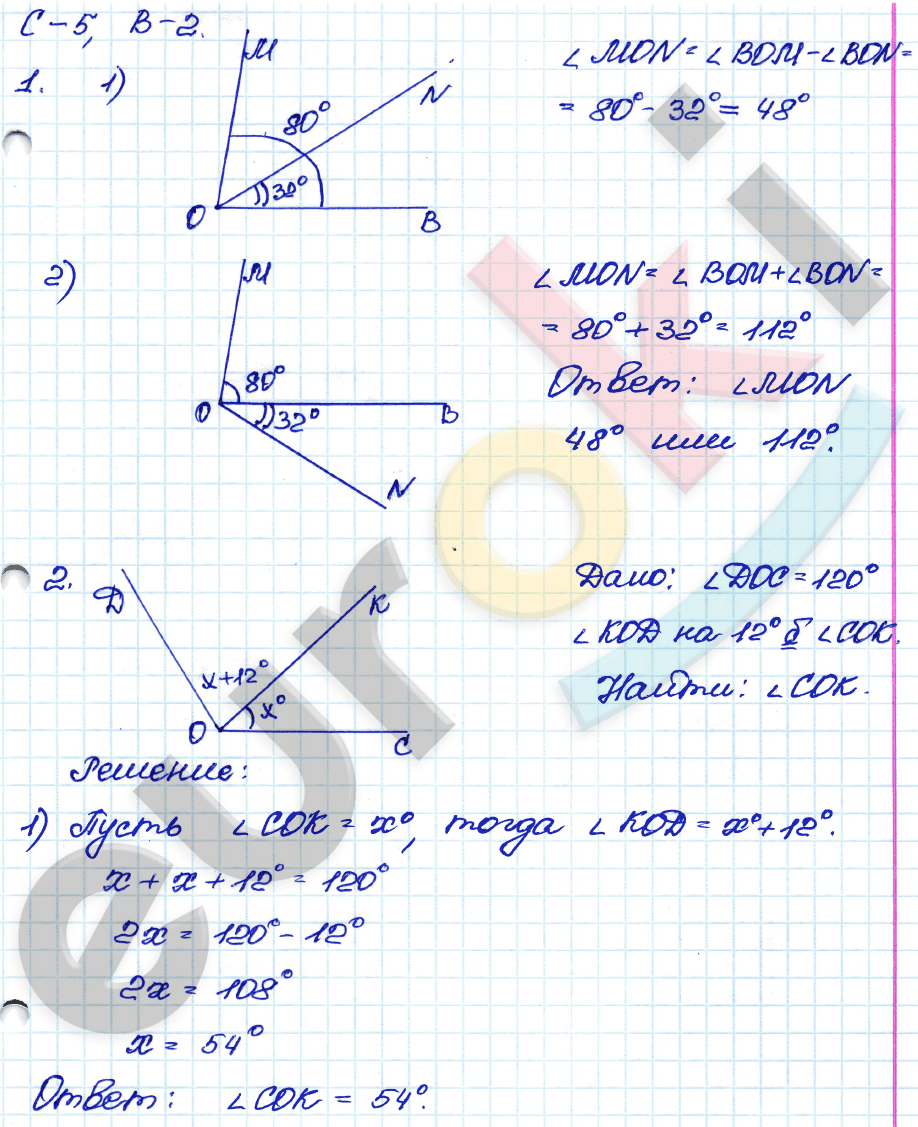 С-5, В-2.
1. 1)
M
N
80°
32°
O
B
∠MON = ∠BOM - ∠BON =
= 80° - 32° = 48°
2)
M
80°
O
32°
B
N
∠MON = ∠BOM + ∠BON =
= 80° + 32° = 112°
Ответ: ∠MON
48° или 112°.
2.
Д
K
x+12°
x°
O
C
Дано: ∠ДОС = 120°
∠КОД на 12° б ∠СОК.
Найти: ∠СОК.
Решение:
1) Пусть ∠СОК = x°, тогда ∠КОД = x° + 12°.
x + x + 12° = 120°
2x = 120° - 12°
2x = 108°
x = 54°
Ответ: ∠СОК = 54°.
euroki